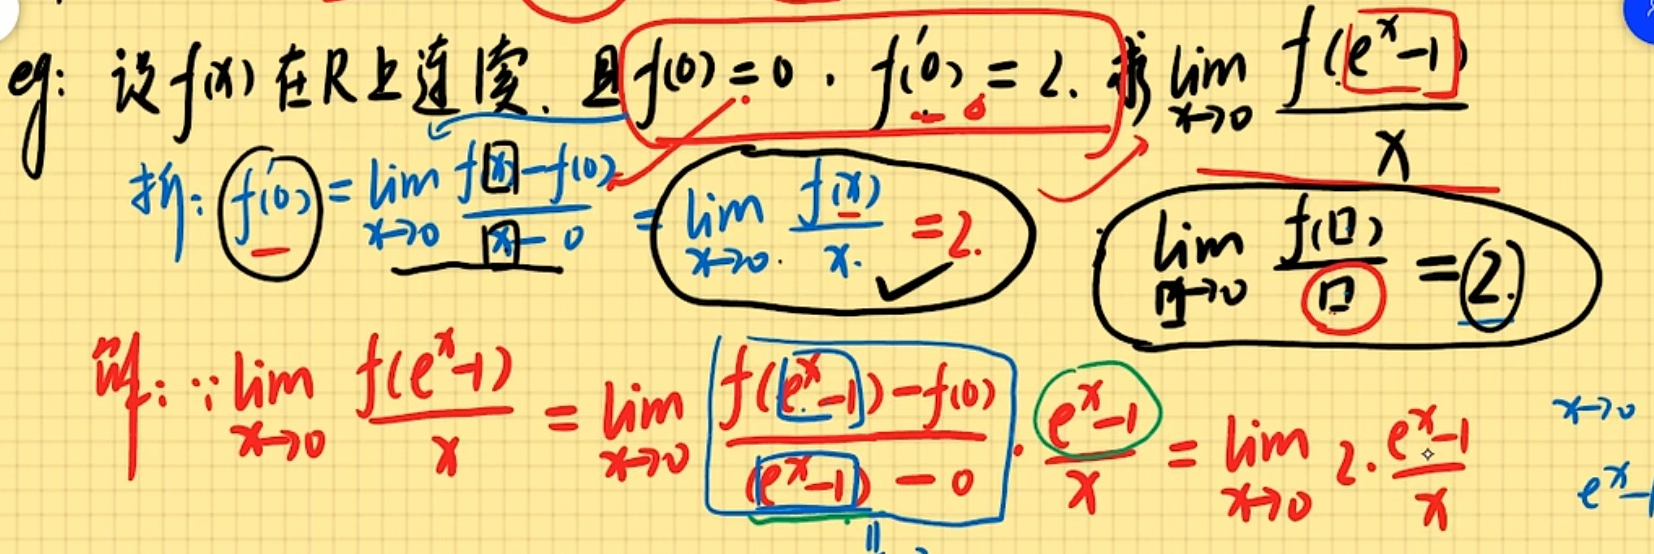 eg: 设f(x)在R上连续. 且f(0)=0. f'(0)=2. 求 lim x→0 f(e^x-1)/x
析: f'(0) = lim x→0 f(x)-f(0)/x-0 = lim x→0 f(x)/x =2. lim □→0 f(□)/□ =2.
解: ∵ lim x→0 f(e^x-1)/x = lim x→0 f(e^x-1)-f(0)/(e^x-1)-0 · e^x-1/x = lim x→0 2·e^x-1/x x→0
e^x-1